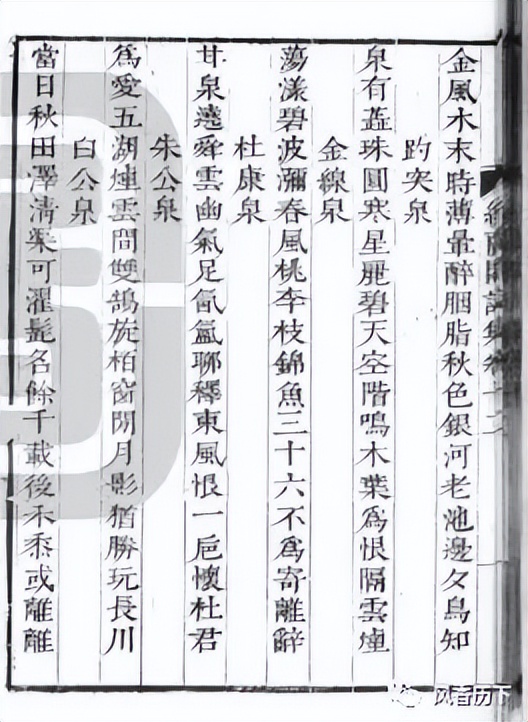 詩集卷十二
金風木末時薄暈醉胭脂秋色銀河老池邊夕鳥知
趵突泉
泉有蕋珠圓寒星麗碧天空階鳴木葉爲恨隔雲煙
金線泉
蕩漾碧波瀰春風桃李枝錦魚三十六不爲寄離辭
杜康泉
甘泉遶舜雲幽氣足氤氳聊釋東風恨一巵懷杜君
朱公泉
爲愛五湖煙雲間雙鵠旋栢窗閒月影猶勝玩長川
白公泉
當日秋田澤淸渠可濯髭名餘千載後禾黍或離離
风香历下